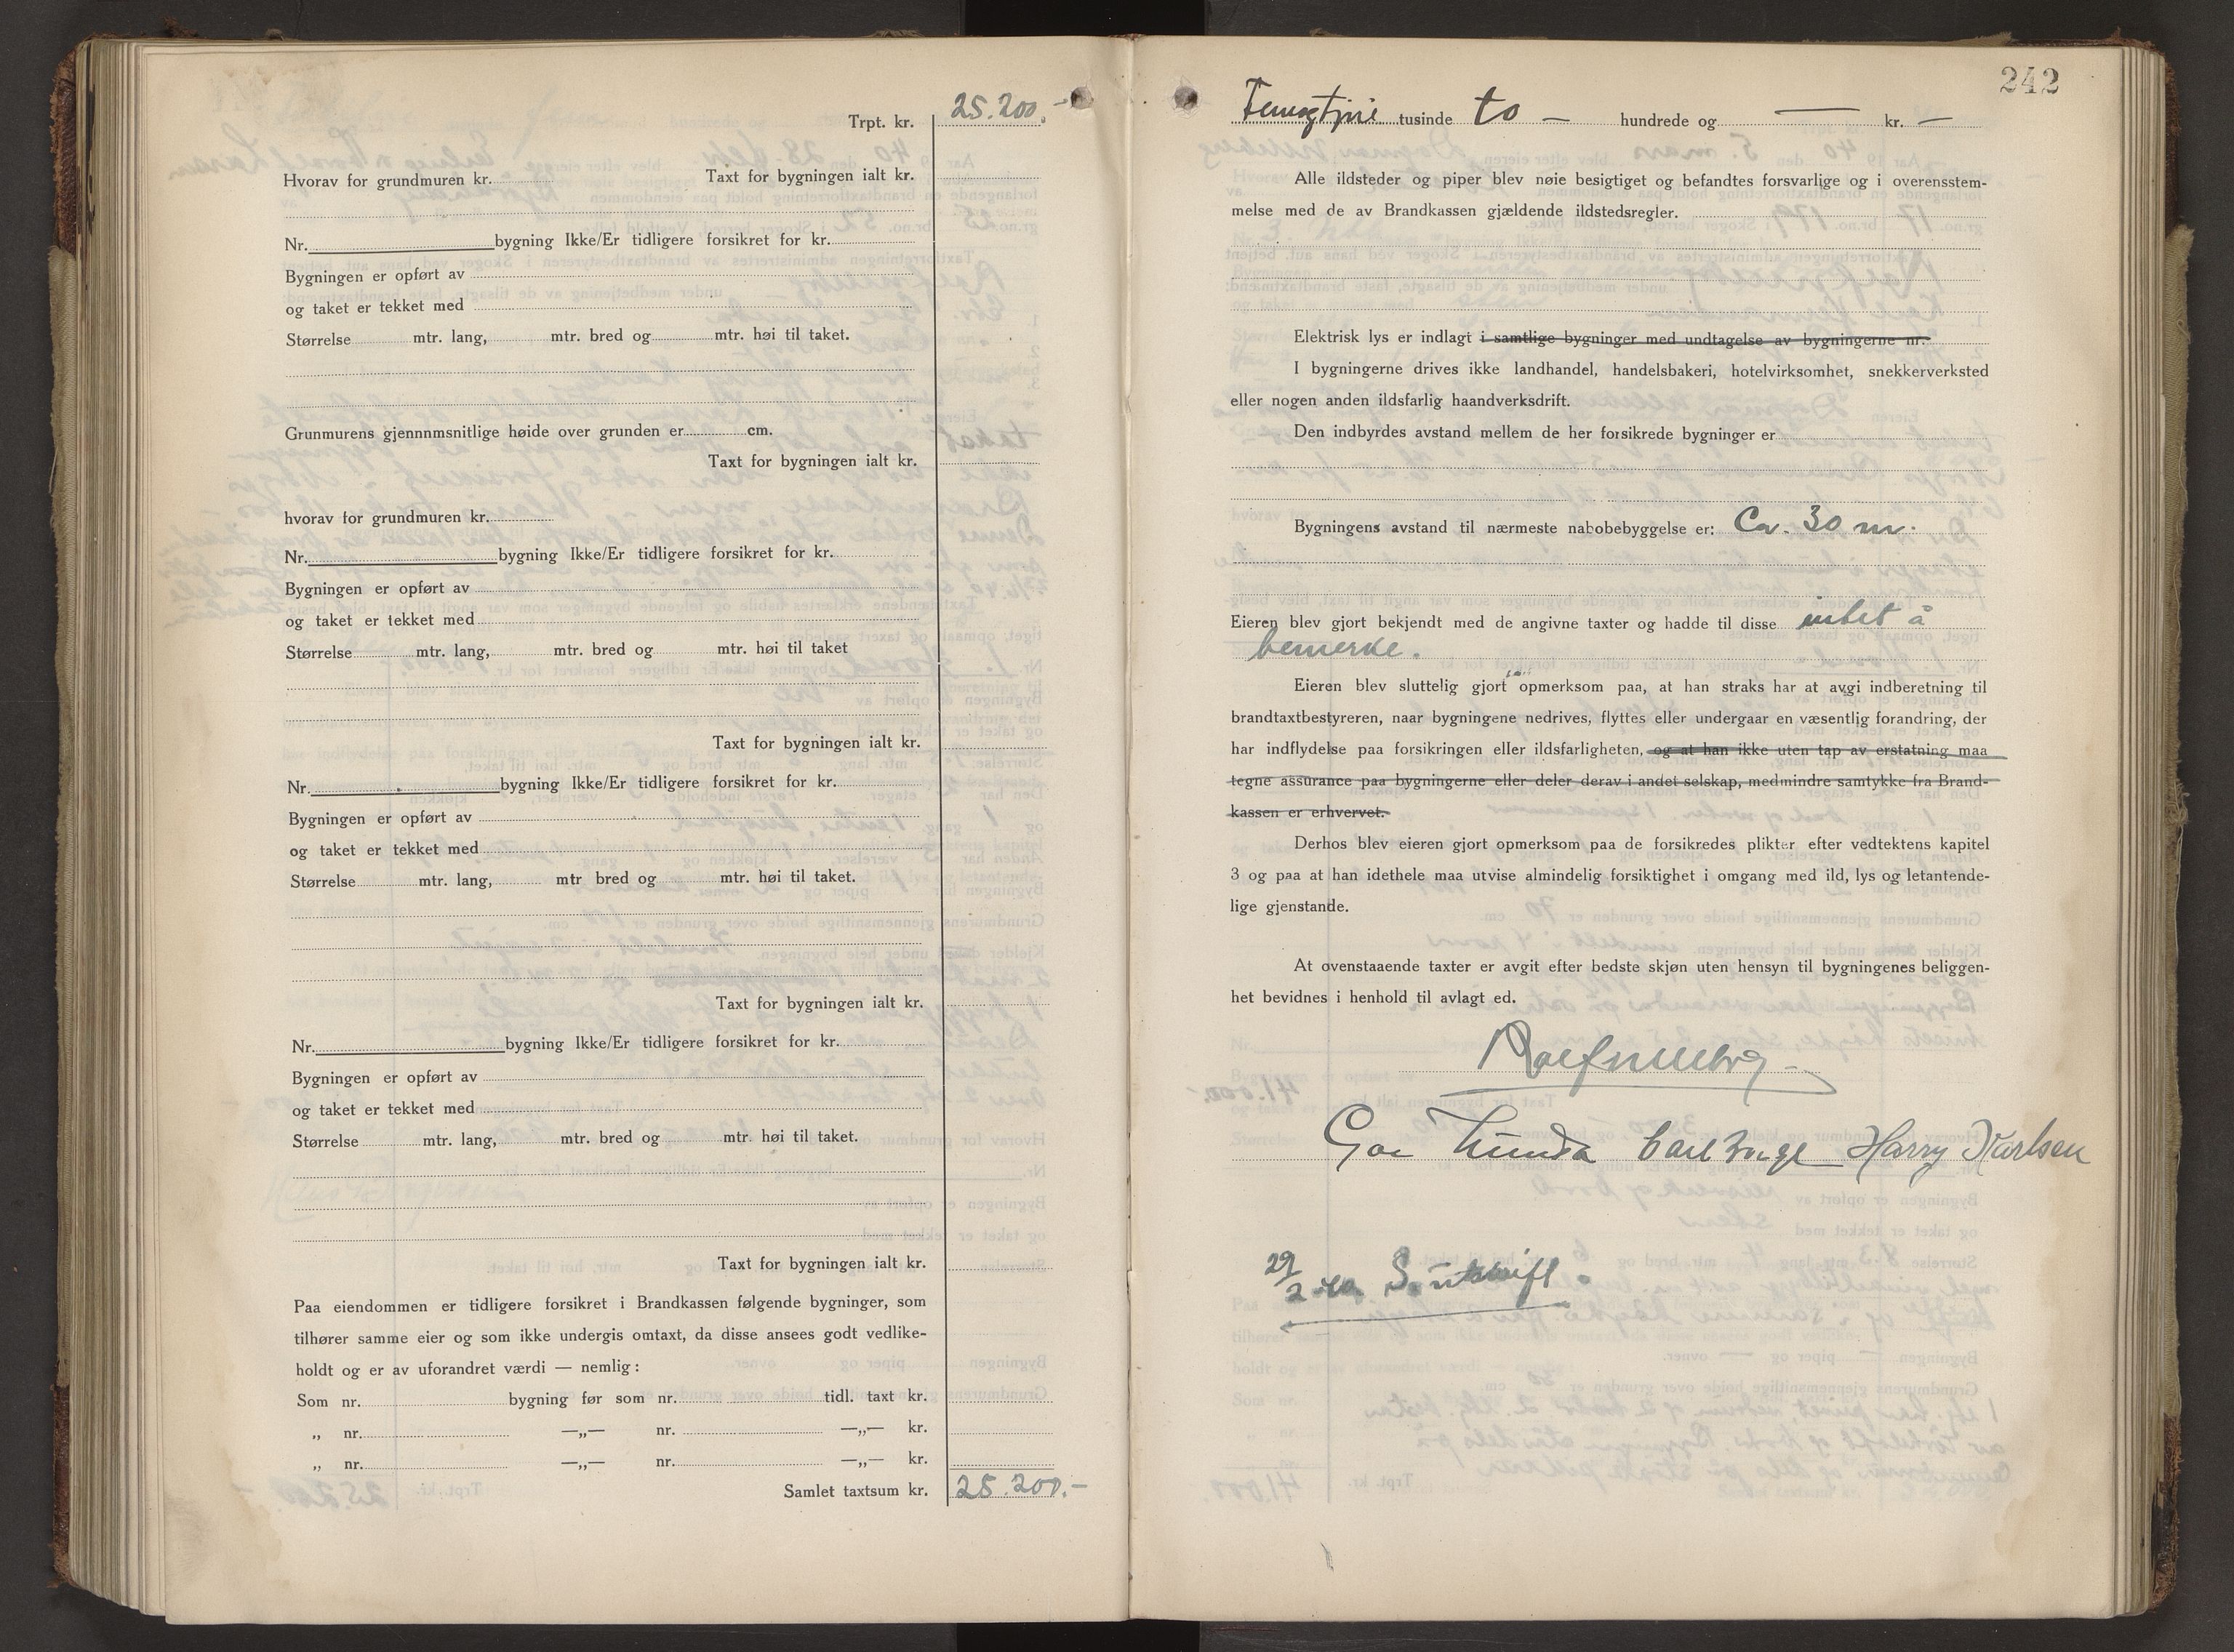 Trpt. kr. 25.200.-
Hvorav for grundmuren kr. Taxt for bygningen ialt kr.
Nr. bygning Ikke/Er tidligere forsikret for kr.
Bygningen er opført av
og taket er tekket med
Størrelse mtr. lang, mtr. bred og mtr. høi til taket.
Grunmurens gjennnmsnitlige høide over grunden er cm.
Taxt for bygningen ialt kr.
hvorav for grundmuren kr.
Nr. bygning Ikke/Er tidligere forsikret for kr.
Bygningen er opført av
og taket er tekket med
Størrelse mtr. lang, mtr. bred og mtr. høi til taket
Taxt for bygningen ialt kr.
Nr. bygning Ikke/Er tidligere forsikret for kr.
Bygningen er opført av
og taket er tekket med
Størrelse mtr. lang, mtr bred og mtr. høi til taket.
Taxt for bygningen ialt kr.
Nr. bygning Ikke/Er tidligere forsikret for kr.
Bygningen er opført av
og taket er tekket med
Størrelse mtr. lang, mtr. bred og mtr. høi til taket.
Taxt for bygningen ialt kr.
Paa eiendommen er tidligere forsikret i Brandkassen følgende bygninger, som
tilhører samme eier og som ikke undergis omtaxt, da disse ansees godt vedlike-
holdt og er av uforandret værdi — nemlig:
Som nr. bygning før som nr. tidl. taxt kr.
„ nr. —„— nr. —„— kr.
„ nr. —„— nr. —„— kr.
Samlet taxtsum kr. 25.200.-
242
tusinde to — hundrede og — kr. —
Alle ildsteder og piper blev nøie besigtiget og befandtes forsvarlige og i overensstem-
melse med de av Brandkassen gjældende ildstedsregler.
Elektrisk lys er indlagt i samtlige bygninger med undtagelse av bygningerne nr.
I bygningerne drives ikke landhandel, handelsbakeri, hotelvirksomhet, snekkerverksted
eller nogen anden ildsfarlig haandverksdrift.
Den indbyrdes avstand mellem de her forsikrede bygninger er
Bygningens avstand til nærmeste nabobebyggelse er: Ca. 30 m.
Eieren blev gjort bekjendt med de angivne taxter og hadde til disse intet å
bemerke.
Eieren blev sluttelig gjort opmerksom paa, at han straks har at avgi indberetning til
brandtaxtbestyreren, naar bygningene nedrives, flyttes eller undergaar en væsentlig forandring, der
har indflydelse paa forsikringen eller ildsfarligheten, og at han ikke uten tap av erstatning maa
tegne assurance paa bygningerne eller deler derav i andet selskap, medmindre samtykke fra Brand-
kassen er erhvervet.
Derhos blev eieren gjort opmerksom paa de forsikredes plikter efter vedtektens kapitel
3 og paa at han idethele maa utvise almindelig forsiktighet i omgang med ild, lys og letantende-
lige gjenstande.
At ovenstaaende taxter er avgit efter bedste skjøn uten hensyn til bygningenes beliggen-
het bevidnes i henhold til avlagt ed.
Harry Karlsen
29/2-40. S. utskrift.